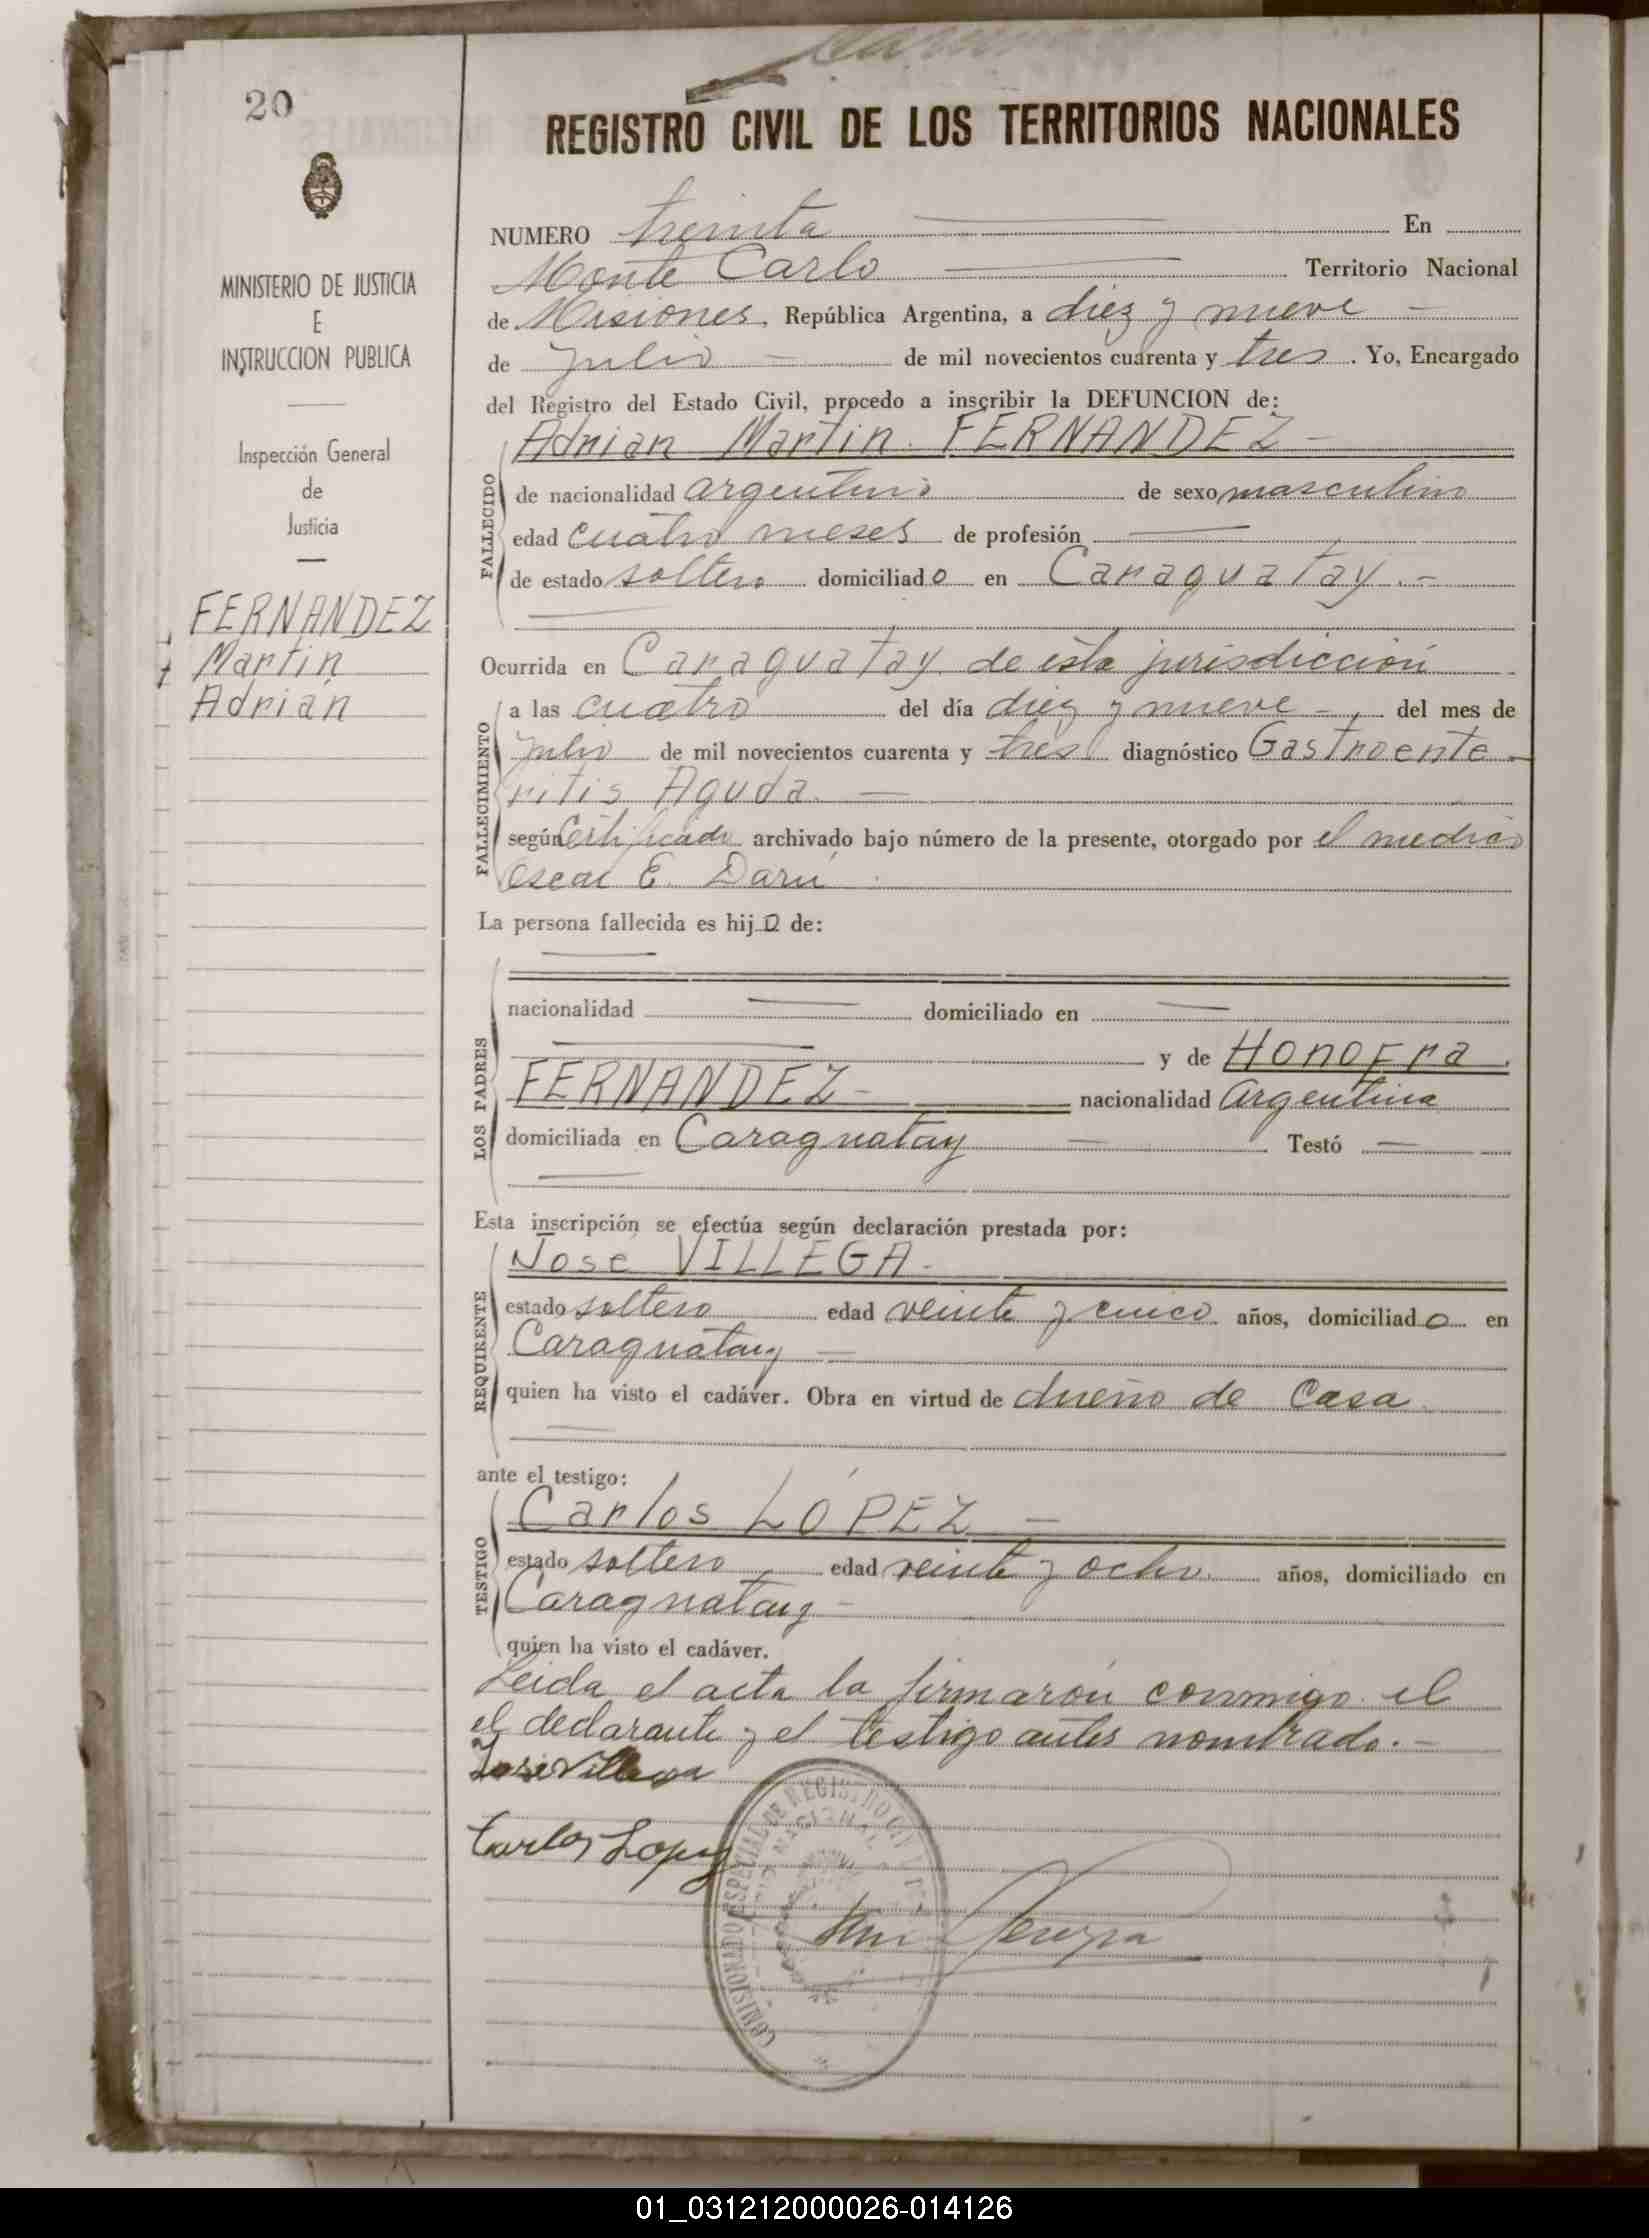 20
REGISTRO CIVIL DE LOS TERRITORIOS NACIONALES
MINISTERIO DE JUSTICIA
E
INSTRUCCION PUBLICA
Inspección General
de
Justicia
FERNANDEZ
Martín
Adrián
NUMERO treinta En
Monte Carlo Territorio Nacional
de Misiones, República Argentina, a diez y nueve
de julio de mil novecientos cuarenta y tres. Yo, Encargado
del Registro del Estado Civil, procedo a inscribir la DEFUNCION de:
FALLECIDO
Adrian Martin FERNANDEZ
de nacionalidad argentino de sexo masculino
edad cuatro meses de profesión
de estado soltero domiciliado en Caraguatay.
Ocurrida en Caraguatay de esta jurisdicción
FALLECIMIENTO
a las cuatro del día diez y nueve, del mes de
julio de mil novecientos cuarenta y tres diagnóstico Gastroente-
ritis Aguda.
según Certificado archivado bajo número de la presente, otorgado por el medico
Oscar E. Darú
La persona fallecida es hijo de:
LOS PADRES
nacionalidad domiciliado en
y de Honofra
FERNANDEZ nacionalidad argentina
domiciliada en Caraguatay Testó
Esta inscripción se efectúa según declaración prestada por:
REQUIRENTE
José VILLEGA.
estado soltero edad veinte y cinco años, domiciliado en
Caraguatay
quien ha visto el cadáver. Obra en virtud de dueño de Casa
ante el testigo:
TESTIGO
Carlos LÓPEZ
estado soltero edad veinte y ocho años, domiciliado en
Caraguatay
quien ha visto el cadáver.
Leida el acta la firmarón conmigo el
el declarante y el testigo antes nombrado.
José Villega
Carlos Lopez
COMISIONADO ESPECIAL DE REGISTRO CIVIL
01_031212000026-014126